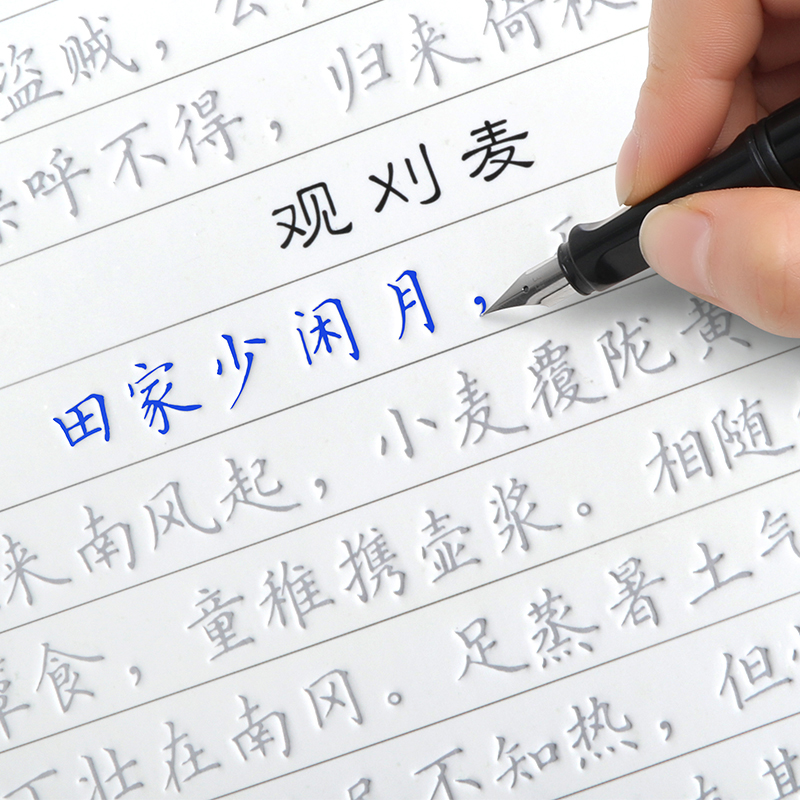 盗贼，公
呼不得，归来倚杖
观刈麦
田家少闲月，
小麦覆陇黄
来南风起，
相随
童稚携壶浆。
箪食，
足蒸暑土气
丁壮在南冈。
不知热，但